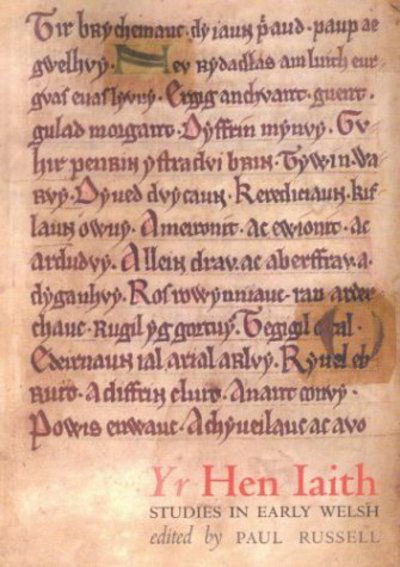 Tir brycheinauc. dy iaun paup ae
gwelhvy. Nev rydadlas am luith eur
gvas euas Ergig anchvant. guent.
gulad morgant. Dyffrin mynvy. Gu
hir penrin ystradvi brin. Tywin Wa
rvy. Dyued dvycaun. Kerediciaun. kif
laun owuy. Ameironit. ac ewionit. ac
ardudvy. Allein drav. ac aberffrav. a
dyganhvy. Ros rowynniauc. ran arder
chauc. Rugil yg Tegigil
Edeirnaun ial, arial arlvy. Ryuel eb
A diffrin cluit. A nant convy.
Powis enwauc. A chyueilauc ac avo
Yr Hen Iaith
STUDIES IN EARLY WELSH
edited by PAUL RUSSELL